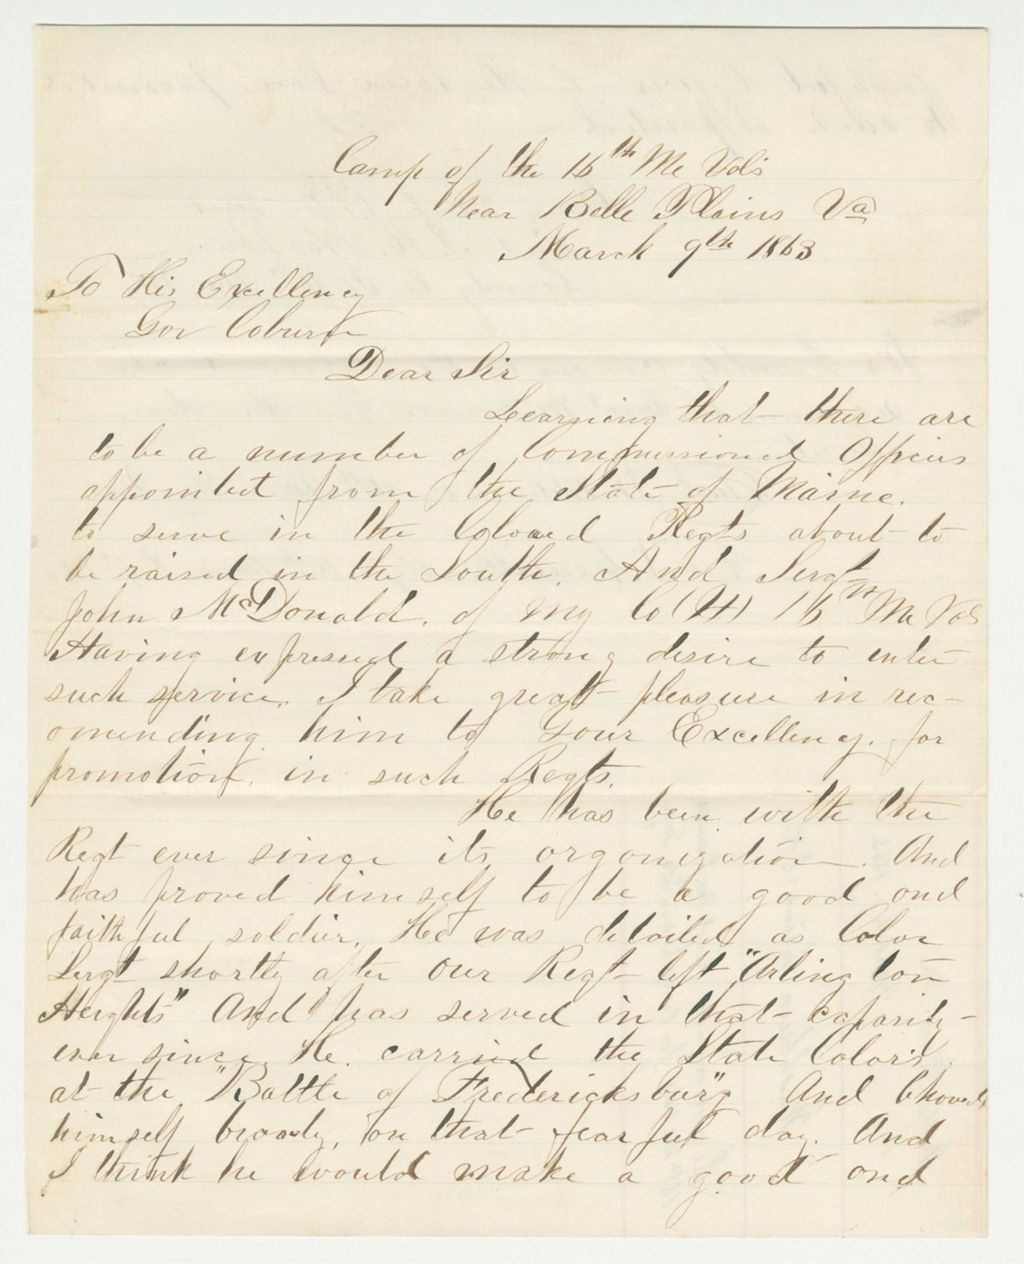 Camp of the 16th Me Vols
Near Belle Plains Va
March 9th 1863
To His Excellency
Gov Coburn
Dear Sir
Learning that there are
to be a number of Commissioned Officers
appointed from the State of Maine.
to serve in the Colored Regts about to
be raised in the South. And Sergt
John McDonald. of my Co (H) 16th Me Vols
Having expressed a strong desire to enter
such service. I take great pleasure in rec-
omending him to Your Excellency. for
promotion. in such Regts.
He has been with the
Regt ever since its organization. And
has proved himself to be a good and
faithful soldier. He was detailed as Color
Sergt shortly after our Regt left "Arlington
Heights" And has served in that capacity
ever since. He carried the State Colors
at the "Battle of Fredericksburg" And
himself on that fearful day. And
I think he would make a good and